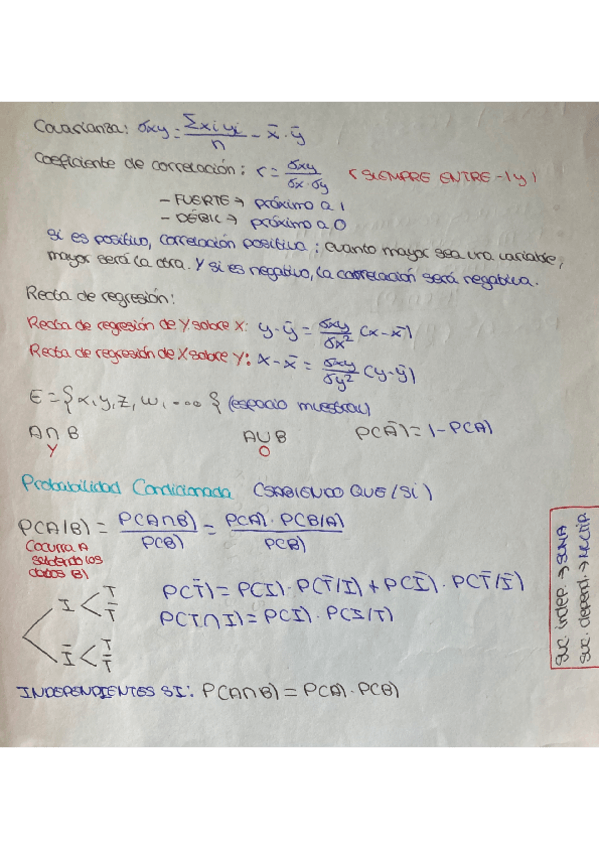 Covarianza: σxy = Σxiyi/n - x̄ · ȳ
Coeficiente de correlación: r = σxy/σx·σy (SIEMPRE ENTRE -1 y 1
- FUERTE → próximo a 1
- DÉBIL → próximo a 0
Si es positivo, correlación positiva; cuanto mayor sea una variable,
mayor será la otra. Y si es negativo, la correlación será negativa.
Recta de regresión:
Recta de regresión de Y sobre X: y - ȳ = σxy/σx² (x - x̄)
Recta de regresión de X sobre Y: x - x̄ = σxy/σy² (y - ȳ)
E = {x, y, z, w, ....} (espacio muestral)
A∩B A∪B P(Ā) = 1 - P(A)
Y O
Probabilidad Condicionada (SABIENDO QUE / Si)
P(A/B) = P(A∩B)/P(B) = P(A) · P(B/A)/P(B)
(Ocurra A
sabiendo los
datos B)
I < T
T̄
Ī < T
T̄
P(T̄) = P(I) · P(T̄/I) + P(Ī) · P(T̄/Ī)
P(T∩I) = P(I) · P(I/T)
INDEPENDIENTES SI: P(A∩B) = P(A) · P(B)
suc. indep. → SUMA
suc. depend. →